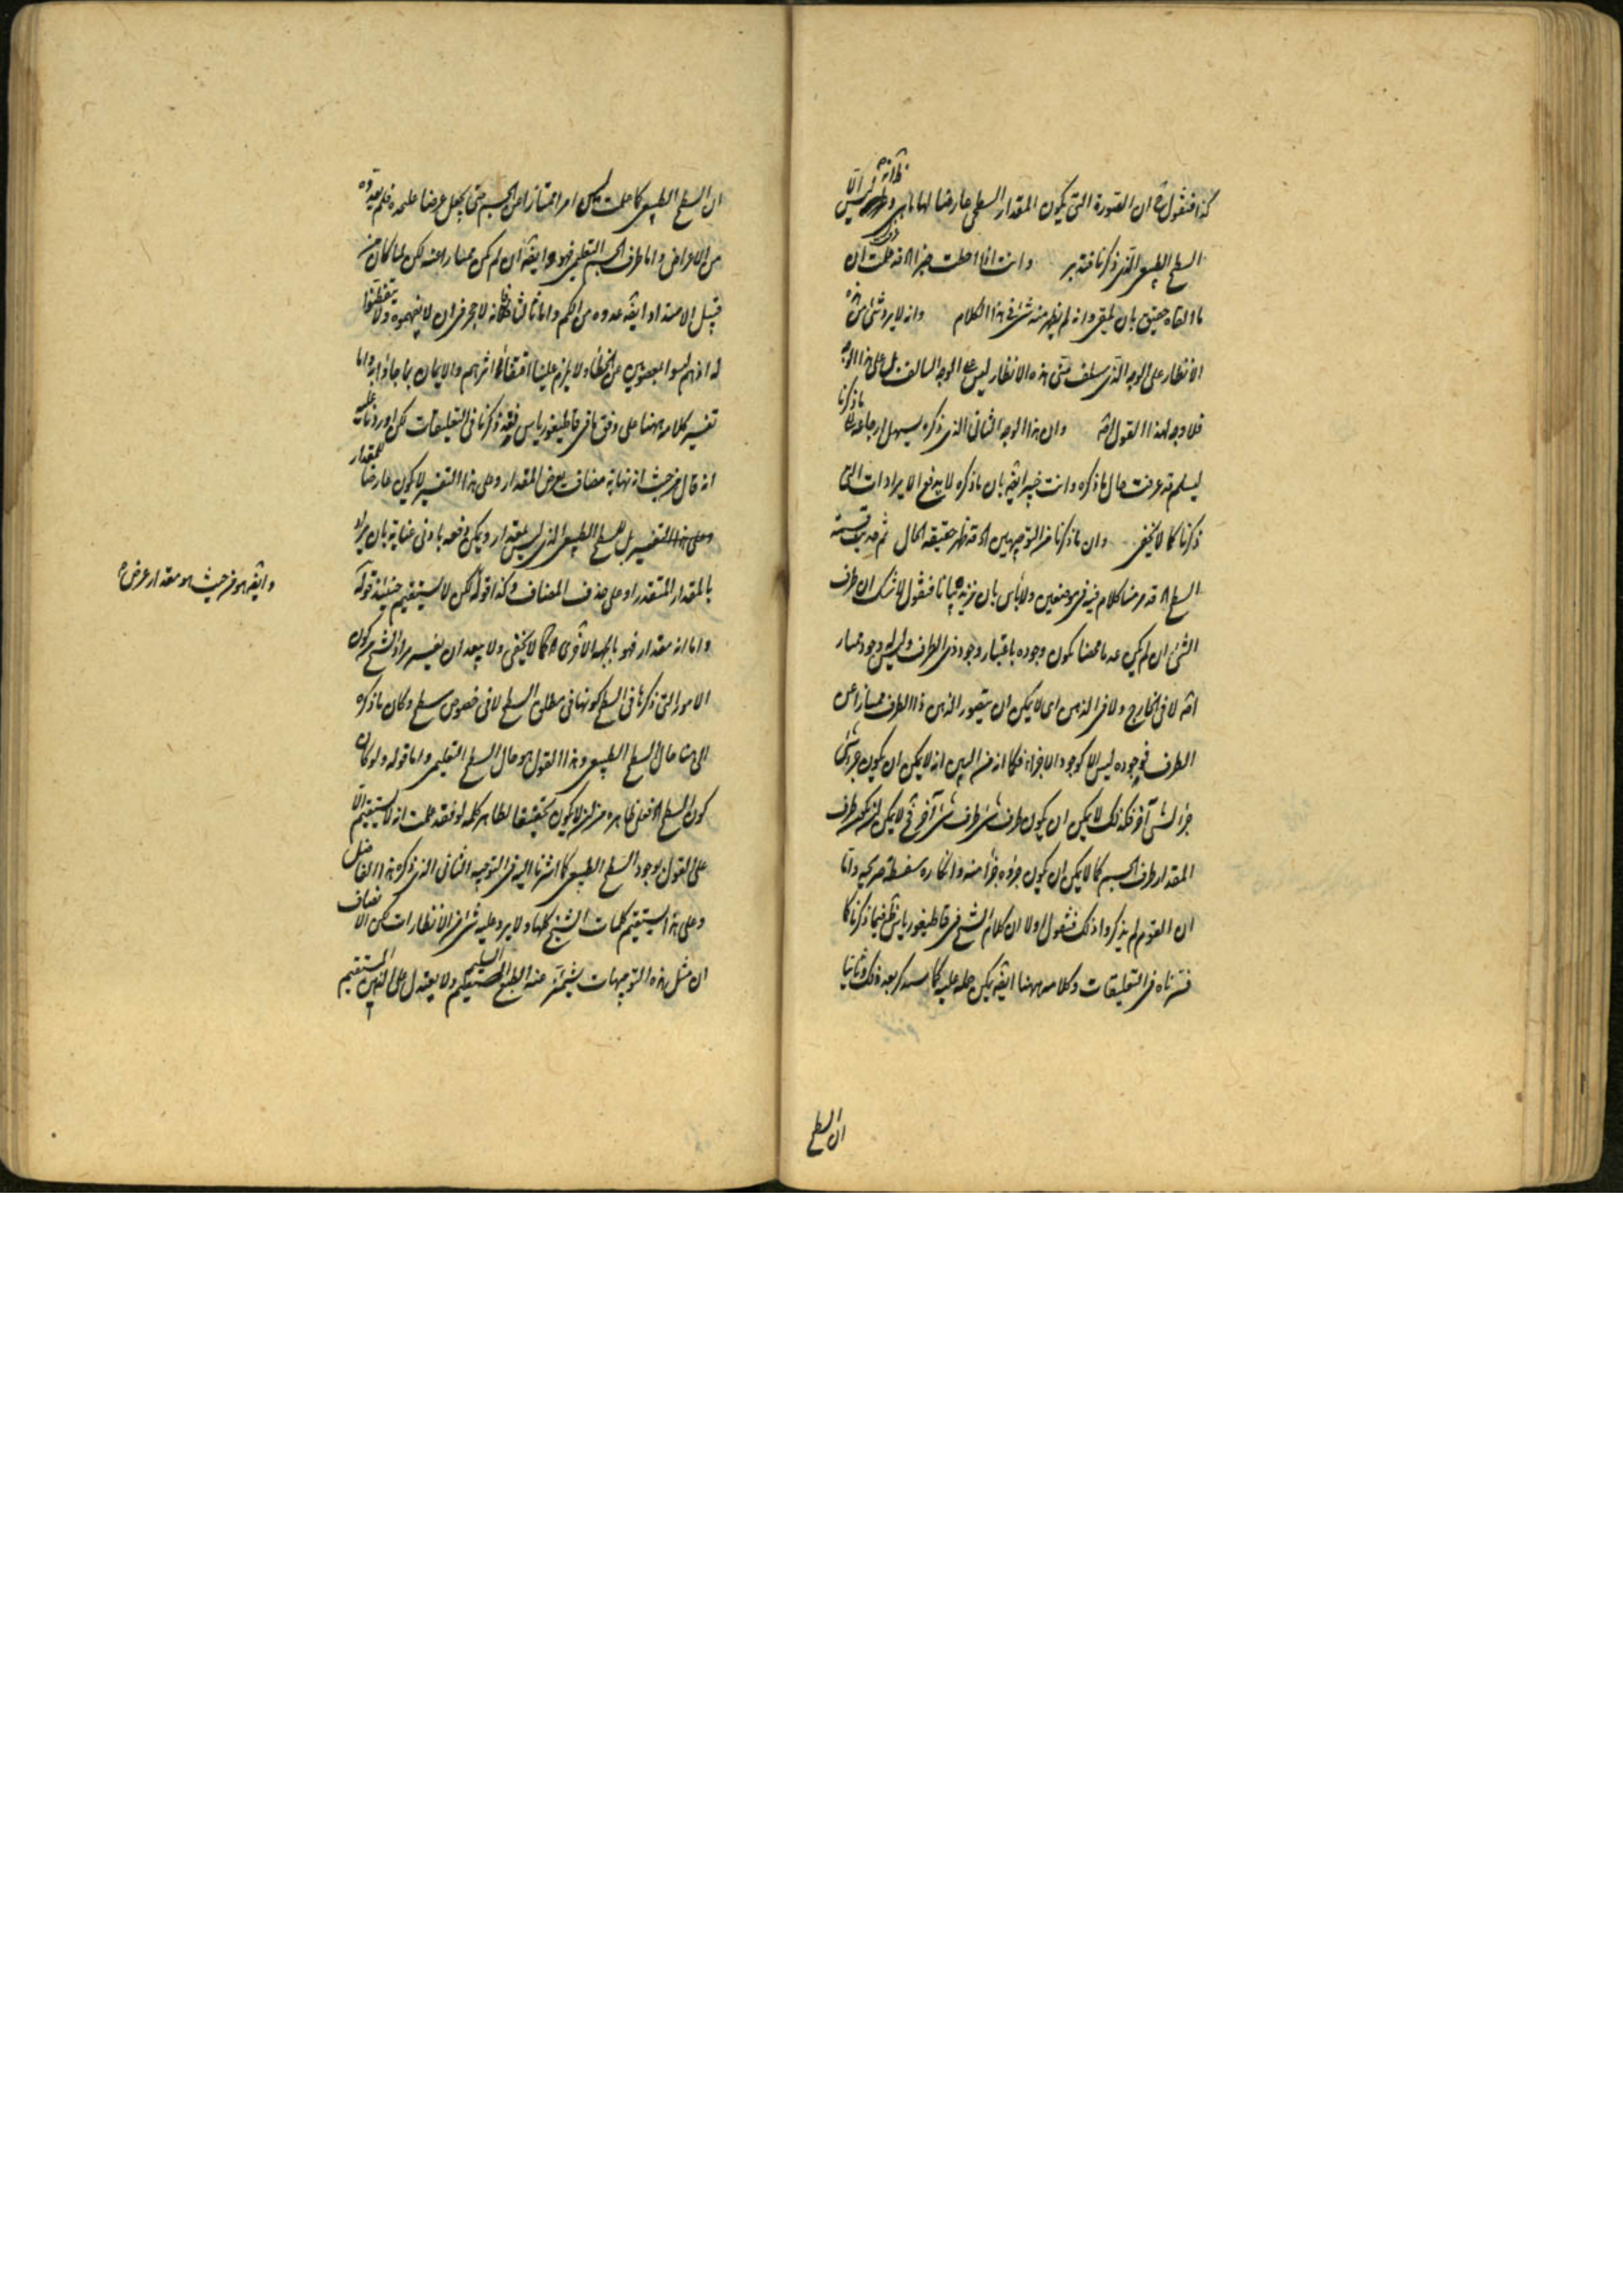 كذا فنقول ان الصورة التى يكون المقدار السطحى عارضا لها ليس الا
السطح الطبيعى الذى ذكرنا فتدبر وانت اذا احطت خبرا قد علمت ان
ما القاه حقيق بان يلقى وانه لم يظهر منه شئ فى هذا الكلام وانه لا يرد شئ من هذه
الانظار على الوجه الذى سلف مبنى هذه الانظار ليس على الوجه السالف بل على هذا الوجه
فلا وجه لهذا القول وان هذا الوجه الثانى الذى ذكره يسهل ارجاعه الى ما ذكرنا
ليسلم قد عرفت حال ما ذكره وانت خبير ايضا بان ما ذكره لا يدفع الايرادات التى
ذكرنا كما لا يخفى وان ما ذكرنا من التوجيهين قد ظهر حقيقة الحال ثم
السطح قد مر منا كلام فيه فى موضعين ولا بأس بان نزيده بيانا فنقول لا شك ان طرف
الشئ ان لم يكن عدما محضا يكون وجوده باعتبار وجود ذى الطرف وليس وجود ممتاز
لا فى الخارج ولا فى الذهن اى لا يمكن ان يتصور الذهن ذا الطرف ممتازا عن
الطرف فوجوده ليس الا كوجود الاجزاء فكما انه من البين انه لا يمكن ان يكون جزء شئ
جزأ لشئ آخر فكذلك لا يمكن ان يكون طرف شئ طرف شئ آخر لا يمكن ان يكون طرف
المقدار طرف الجسم كما لا يمكن ان يكون جزؤه جزأ منه وانكاره سفسطة صريحة واما
ان القوم لم يذكروا ذلك فنقول اولا ان كلام الشيخ فى قاطيغورياس فيما ذكرنا كما
فسرناه فى التعليقات وكلامه ههنا ايضا يمكن حمله عليه كما سنذكر بعد ذلك وثانيا
ان السطح
ان السطح الطبيعى كما علمت ليس امرا ممتازا عن الجسم حتى يجعل عرضا علىحدة فلم يعدوه
من الاعراض واما طرف الجسم التعليمى فهو ايضا ان لم يكن ممتازا عنه لكن لما كان من
قبيل الامتداد ايضا عدوه من الكم واما ثالثا فلانه لا حجر فى ان لا يفهموه ولا يتفطنوا
له اذ هم ليسوا بمعصومين عن الخطأ ولا يلزم علينا اقتفاء اثرهم والايمان بما جاؤا به واما
تفسير كلامه ههنا على وفق ما فى قاطيغورياس فقد ذكرنا فى التعليقات لكن اوردنا عليه
انه قال من حيث انه نهاية مضاف يعرض المقدار وعلى هذا التفسير لا يكون عارضا للمقدار
وعلى هذا التفسير بل للسطح الطبيعى الذى ليس بمقدار ويمكن دفعه بادنى عناية بان يراد
بالمقدار المتقدر او على حذف المضاف وكذا قوله لكن لا يستقيم حينئذ قوله
وايضا هو من حيث هو مقدار عرض
واما انه مقدار فهو بالجهة الاخرى كما لا يخفى ولا يبعد ان يفسر مراد الشيخ بكون
الامور التى ذكرها فى السطح كونها فى مطلق السطح لا فى خصوص سطح وكان ما ذكره
الى هنا حال السطح الطبيعى وهذا القول هو حال السطح التعليمى واما قوله ولو كان
كون السطح فعلى ظاهره لا يكون تحقيقا لظاهر كلمة لو فقد علمت انه لا يستقيم الا
على القول بوجود السطح الطبيعى كما اشرنا اليه فى التوجيه الثانى الذى ذكره هذا الفاضل
وعلى هذا يستقيم كلمات الشيخ كلها ولا يرد عليه شئ من الانظارات لكن الانصاف
ان مثل هذه التوجيهات يشمئز عنه الطبع السليم ولا يعتدل على الذهن المستقيم